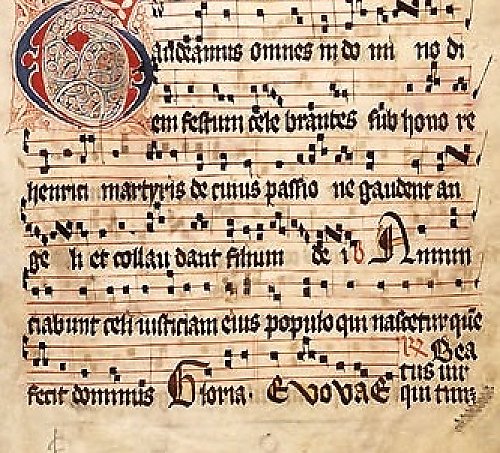 Gaudeamus omnes in do mi no di
em festum cele brantes sub hono re
henrici martyris de cuius passio ne gaudent an
ge li et collau dant filium de i Annun
ciabunt celi iusticiam eius populo qui nascetur que
fecit dominus Gloria. E vovae Bea
tus uir
qui tim